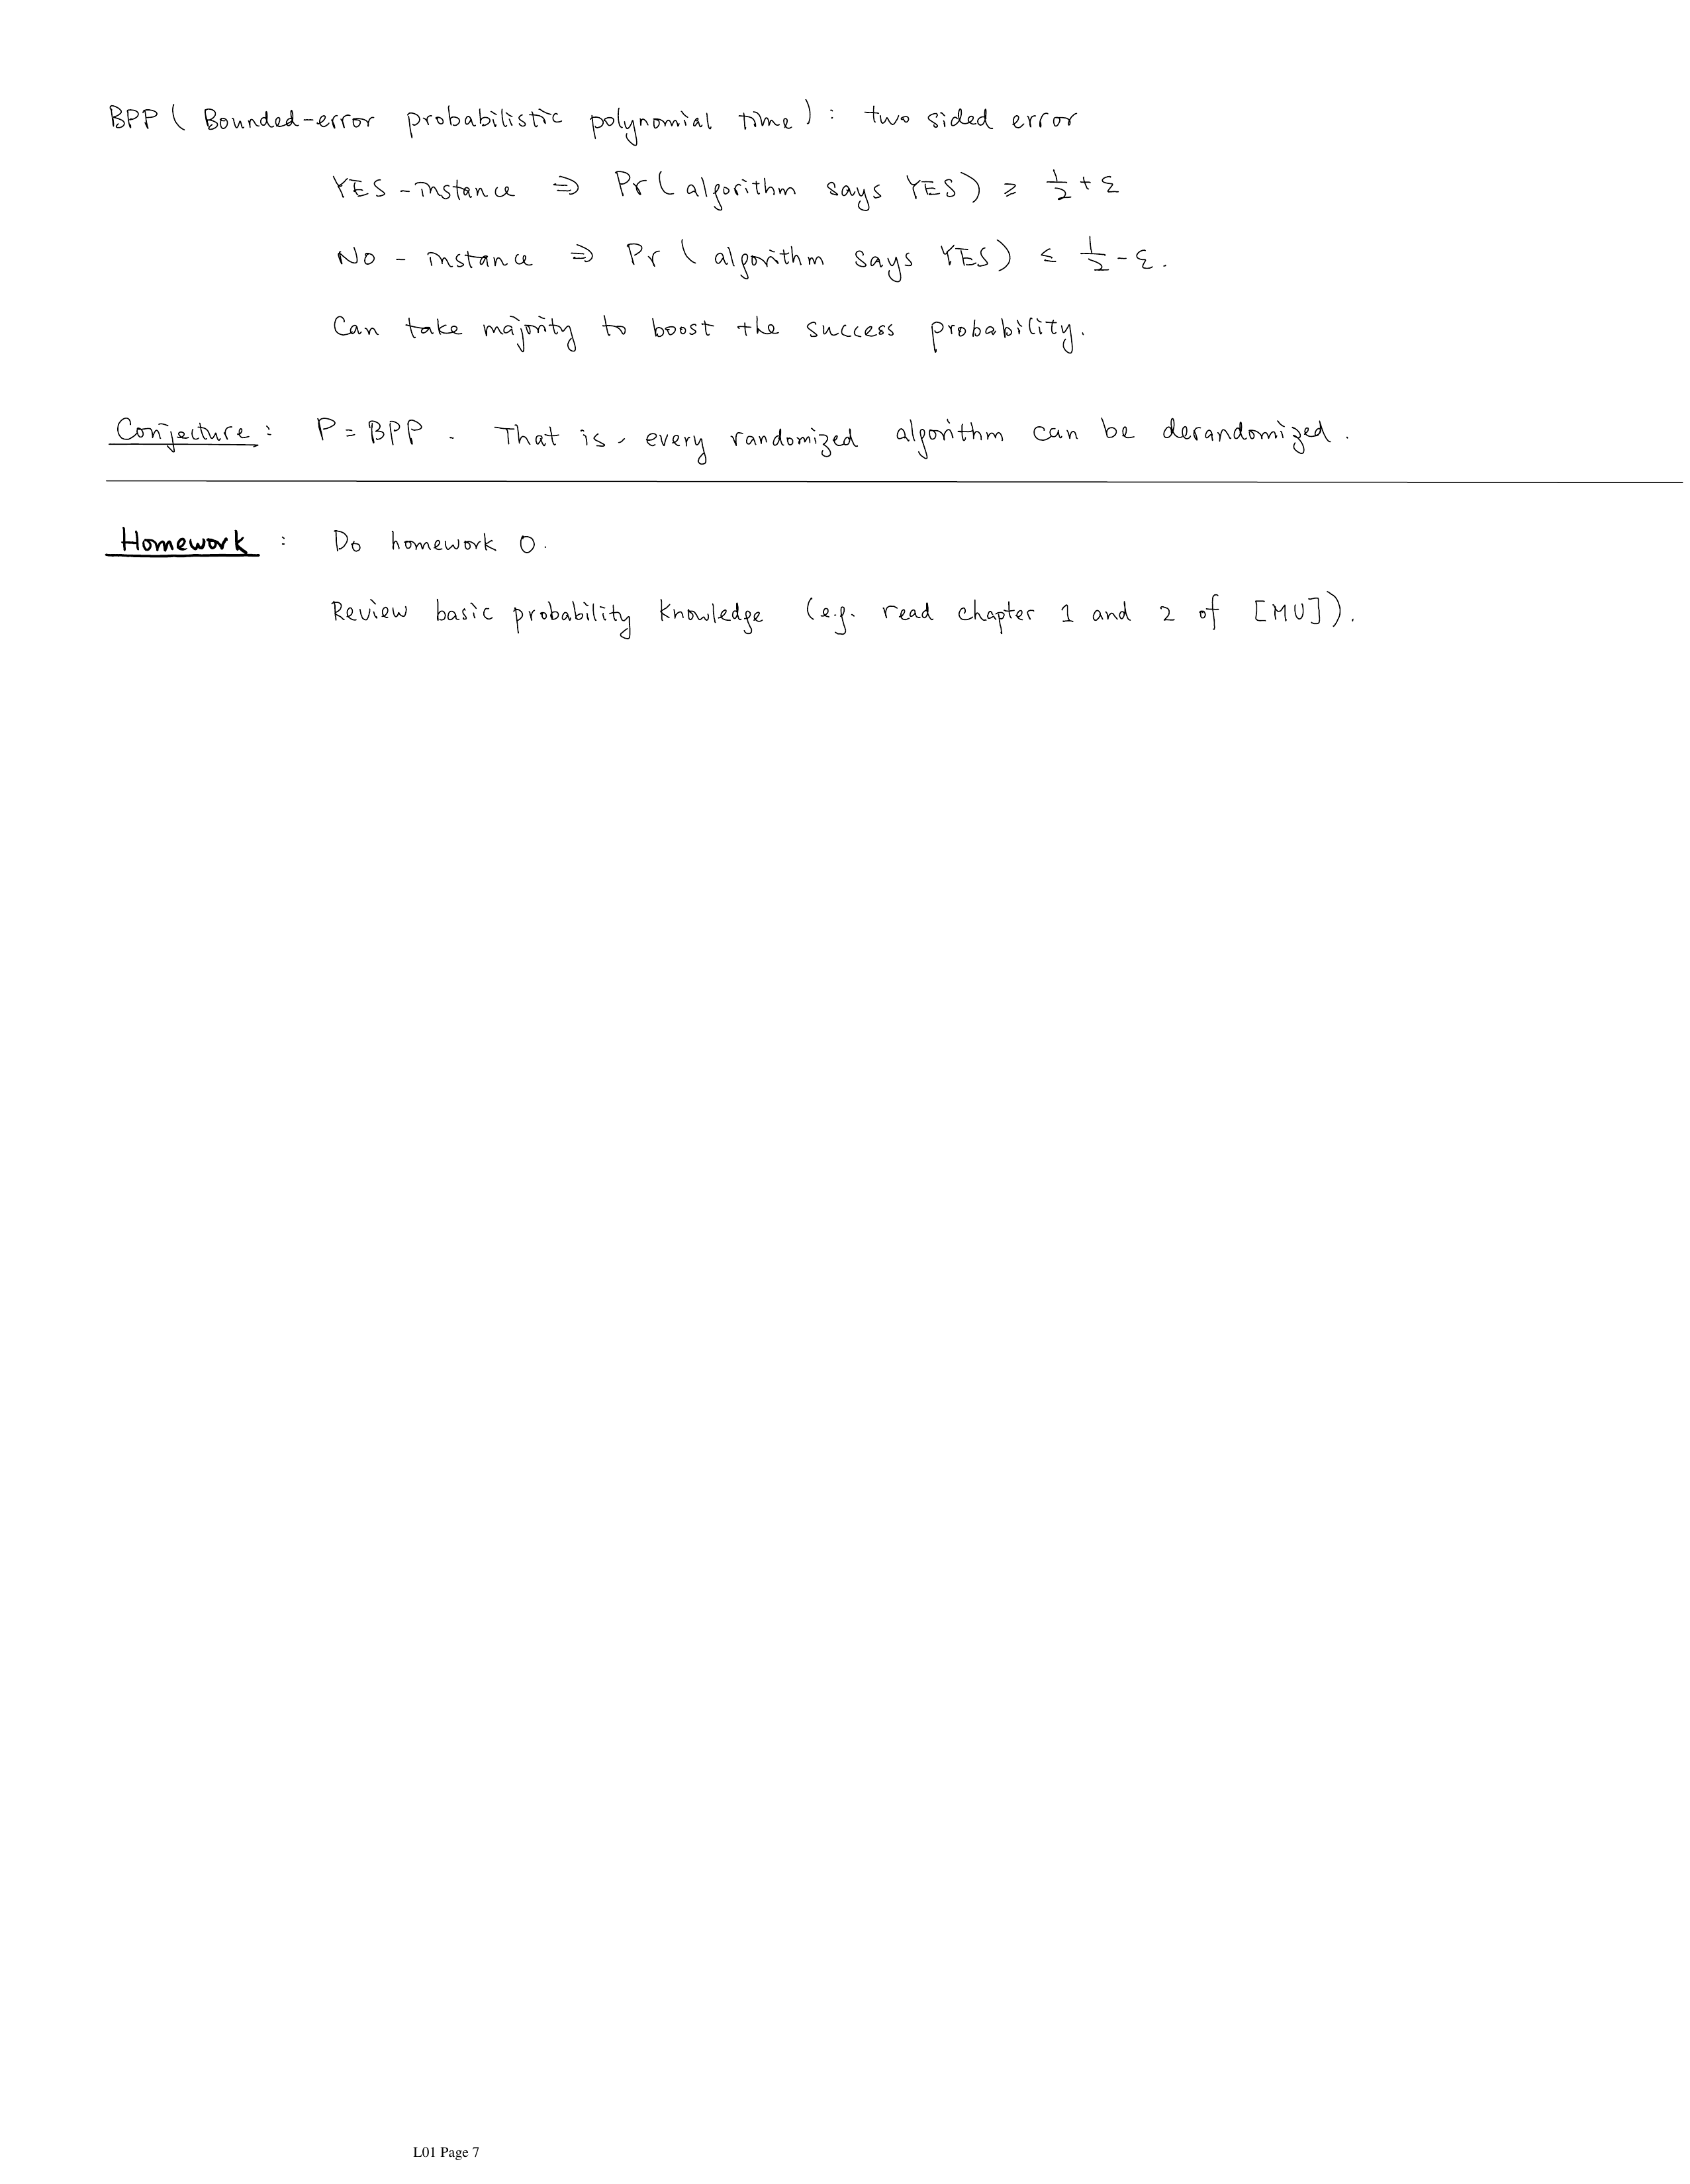 BPP ( Bounded-error probabilistic polynomial time ) : two sided error
YES - instance ⇒ Pr ( algorithm says YES ) ≥ 1/2 + ε
No - instance ⇒ Pr ( algorithm says YES ) ≤ 1/2 - ε.
Can take majority to boost the success probability.
Conjecture : P = BPP . That is, every randomized algorithm can be derandomized .
Homework : Do homework 0.
Review basic probability knowledge (e.g. read chapter 1 and 2 of [MU]).
L01 Page 7